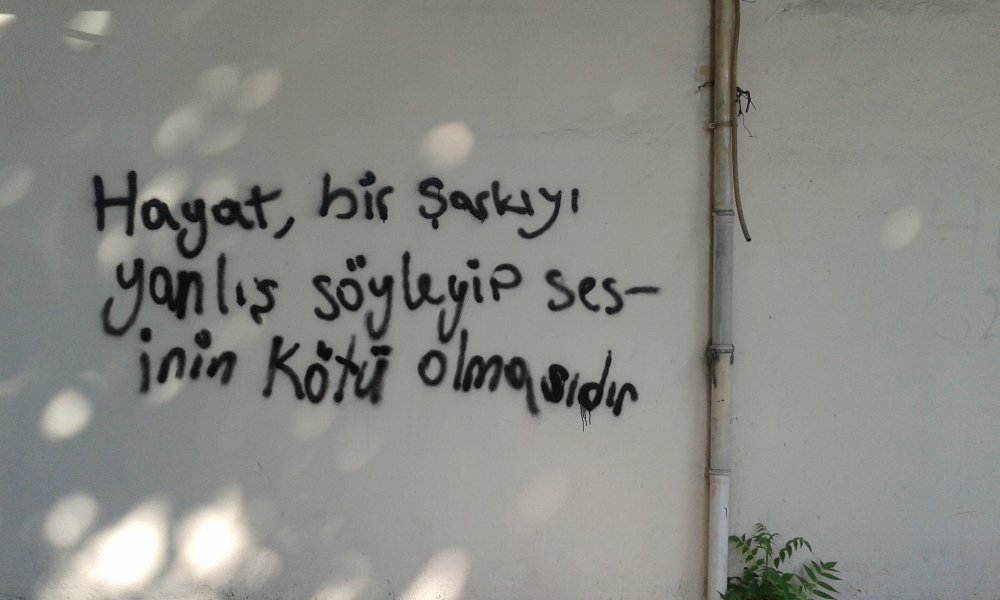 Hayat, bir şarkıyı
yanlış söyleyip ses-
inin kötü olmasıdır